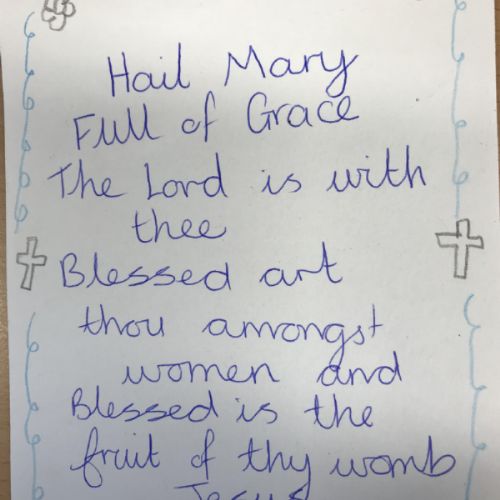 Hail Mary
Full of Grace
The Lord is with
thee
Blessed art
thou amongst
women and
Blessed is the
fruit of thy womb
Jesus